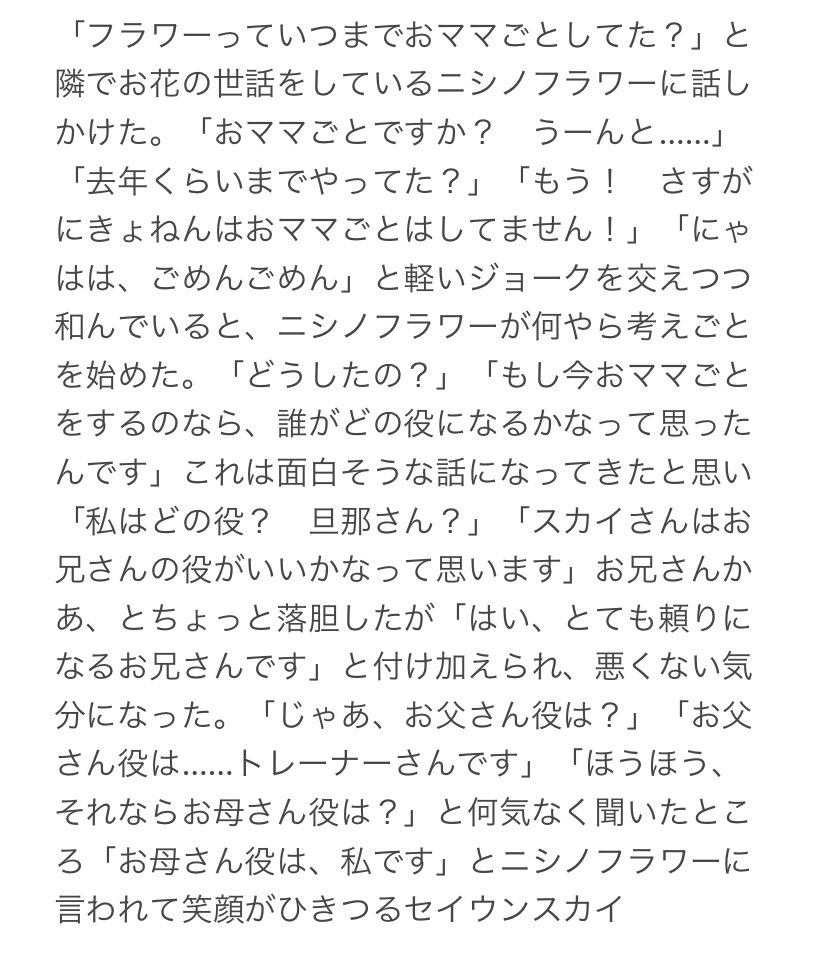 「フラワーっていつまでおママごとしてた？」と
隣でお花の世話をしているニシノフラワーに話し
かけた。「おママごとですか？　うーんと……」
「去年くらいまでやってた？」「もう！　さすが
にきょねんはおママごとはしてません！」「にゃ
はは、ごめんごめん」と軽いジョークを交えつつ
和んでいると、ニシノフラワーが何やら考えごと
を始めた。「どうしたの？」「もし今おママごと
をするのなら、誰がどの役になるかなって思った
んです」これは面白そうな話になってきたと思い
「私はどの役？　旦那さん？」「スカイさんはお
兄さんの役がいいかなって思います」お兄さんか
あ、とちょっと落胆したが「はい、とても頼りに
なるお兄さんです」と付け加えられ、悪くない気
分になった。「じゃあ、お父さん役は？」「お父
さん役は……トレーナーさんです」「ほうほう、
それならお母さん役は？」と何気なく聞いたとこ
ろ「お母さん役は、私です」とニシノフラワーに
言われて笑顔がひきつるセイウンスカイ